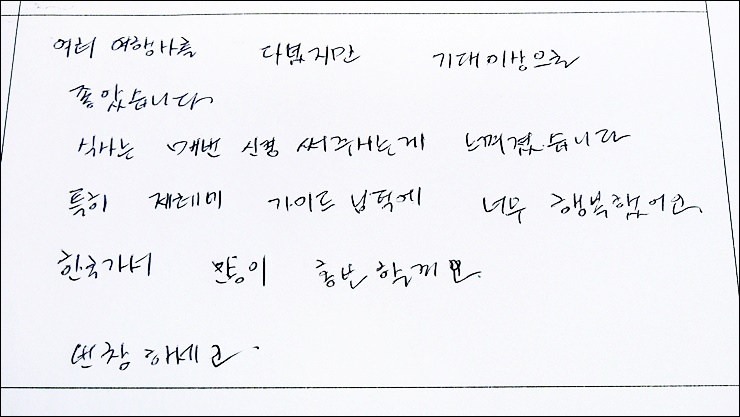 여러 여행사를 다녔지만 기대이상으로
좋았습니다.
식사는 매번 신경 써주시는게 느껴졌습니다
특히 제레미 가이드 덕택에 너무 행복했어요.
한국가서 많이 홍보할께요.
번창하세요.